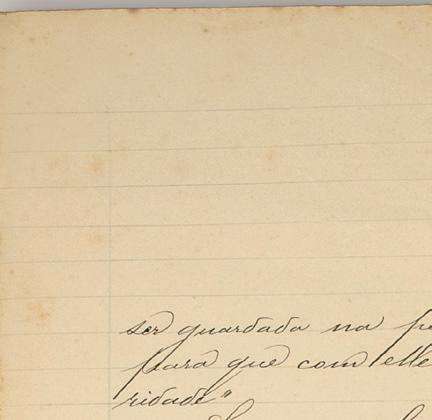 ser guardada na
para que com elle
ridade"